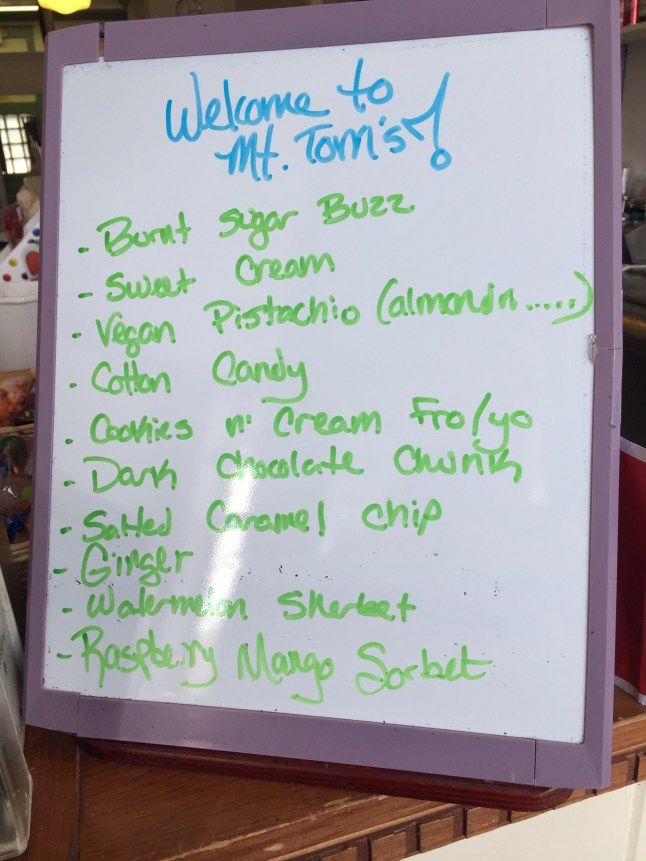 Welcome to
Mt. Tom's!
- Burnt Sugar Buzz
- Sweet Cream
- Vegan Pistachio (almondn.....)
- Cotton Candy
- Cookies n' Cream Fro/yo
- Dark Chocolate Chunk
- Salted Caramel Chip
- Ginger
- Watermelon Sherbert
- Raspberry Mango Sorbet